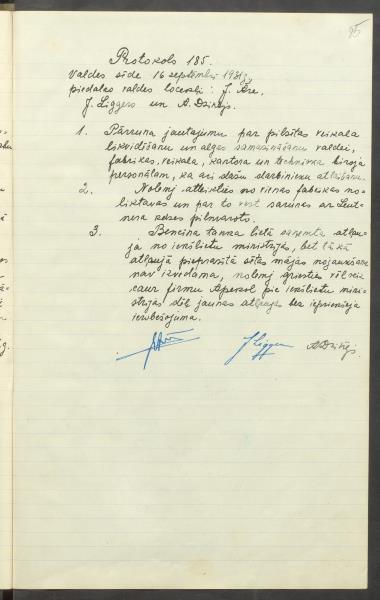 95
Protokols 185.
Valdes sēde 16 septembrī 1931 g.,
piedalās valdes locekļi: J. Āre,
J. Liggers un A. Dzikējs.
1. Pārruna jautājumu par pilsētas veikala
likvidēšanu un algas samazināšanu valdei,
fabrikas, veikala, kantora un techniska biroja
personālam, kā arī dažu darbinieku atlaišanu.
2. Nolemj atteikties no vienas fabrikas no-
liktavas un par to vest sarunas ar
kases pilnvaroto.
3. Bencina tanka lietā saņemta atļau-
ja no iekšlietu ministrijas, bet tā kā
atļaujā pieprasītā sētas mājas nojaukšana
nav izvedama, nolemj griesties vēlreiz
caur firmu pie iekšlietu mini-
strijas dēļ jaunas atļaujas bez iepriekšējā
ierobežojuma.
J Liggers A. Dzikējs.